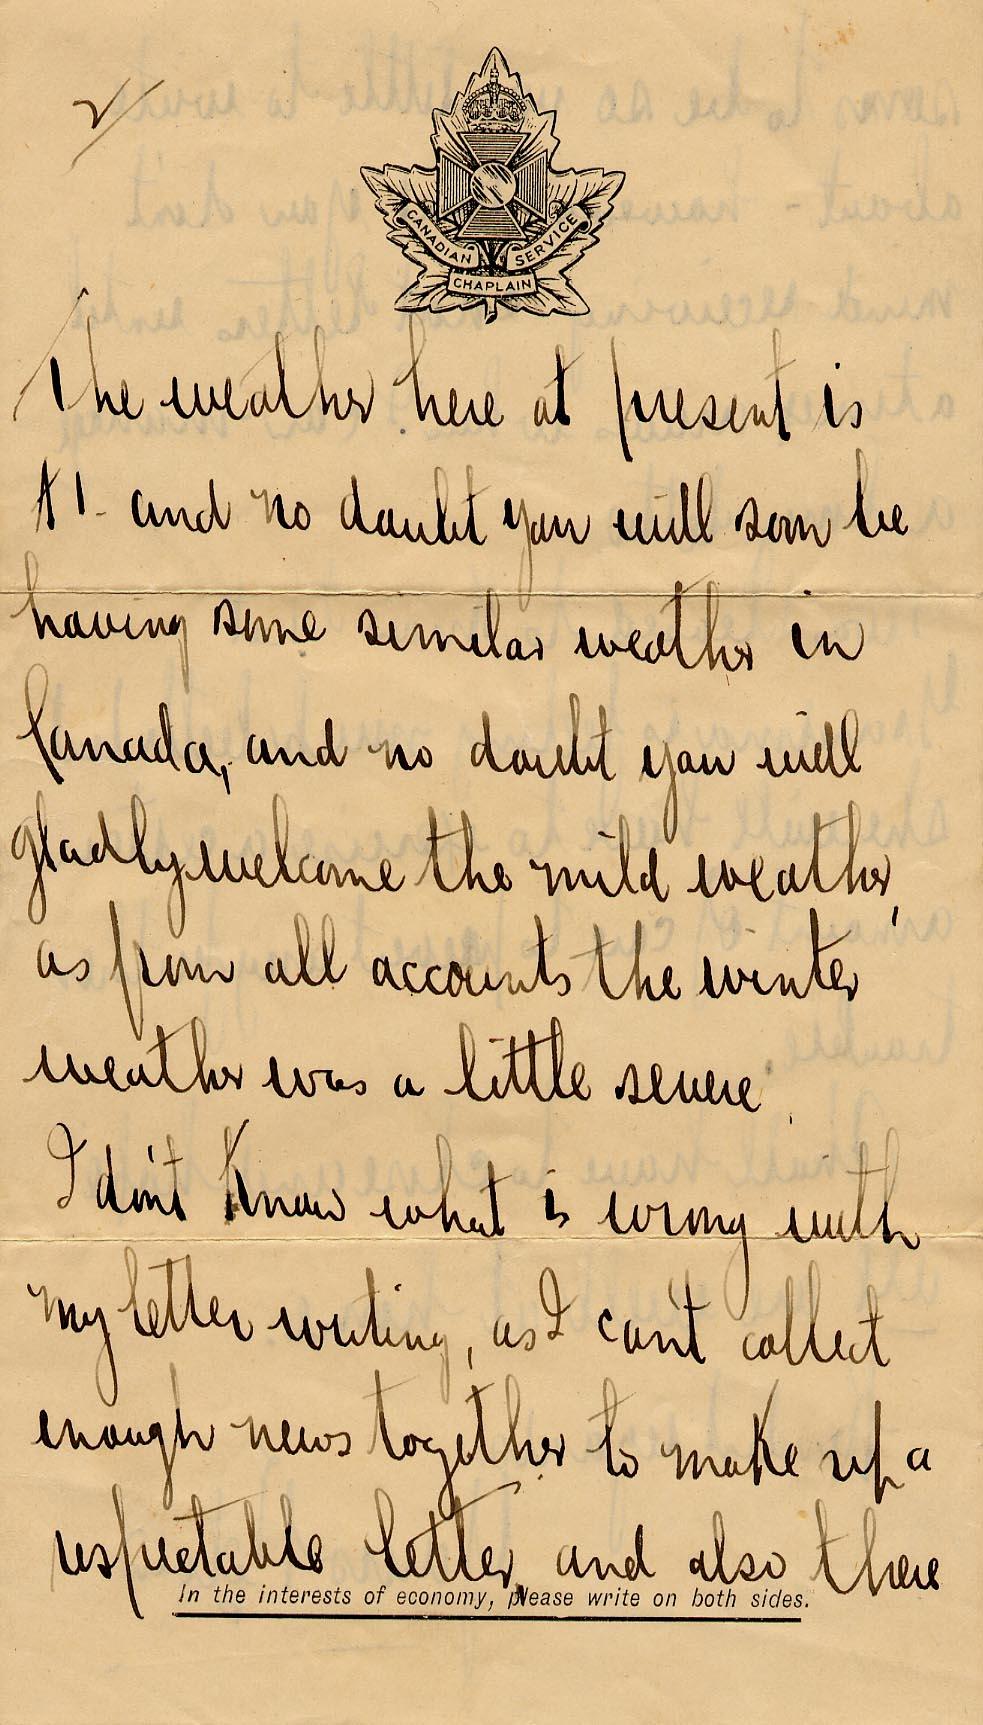 2/
CANADIAN
SERVICE
CHAPLAIN
The weather here at present is
A1- and no doubt you will soon be
having some similar weather in
Canada, and no doubt you will
gladly welcome the mild weather,
as from all accounts the winter
weather was a little severe.
I don't know what is wrong with
my letter writing, as I can't collect
enough news together to make up a
respectable letter, and also there
In the interests of economy, please write on both sides.